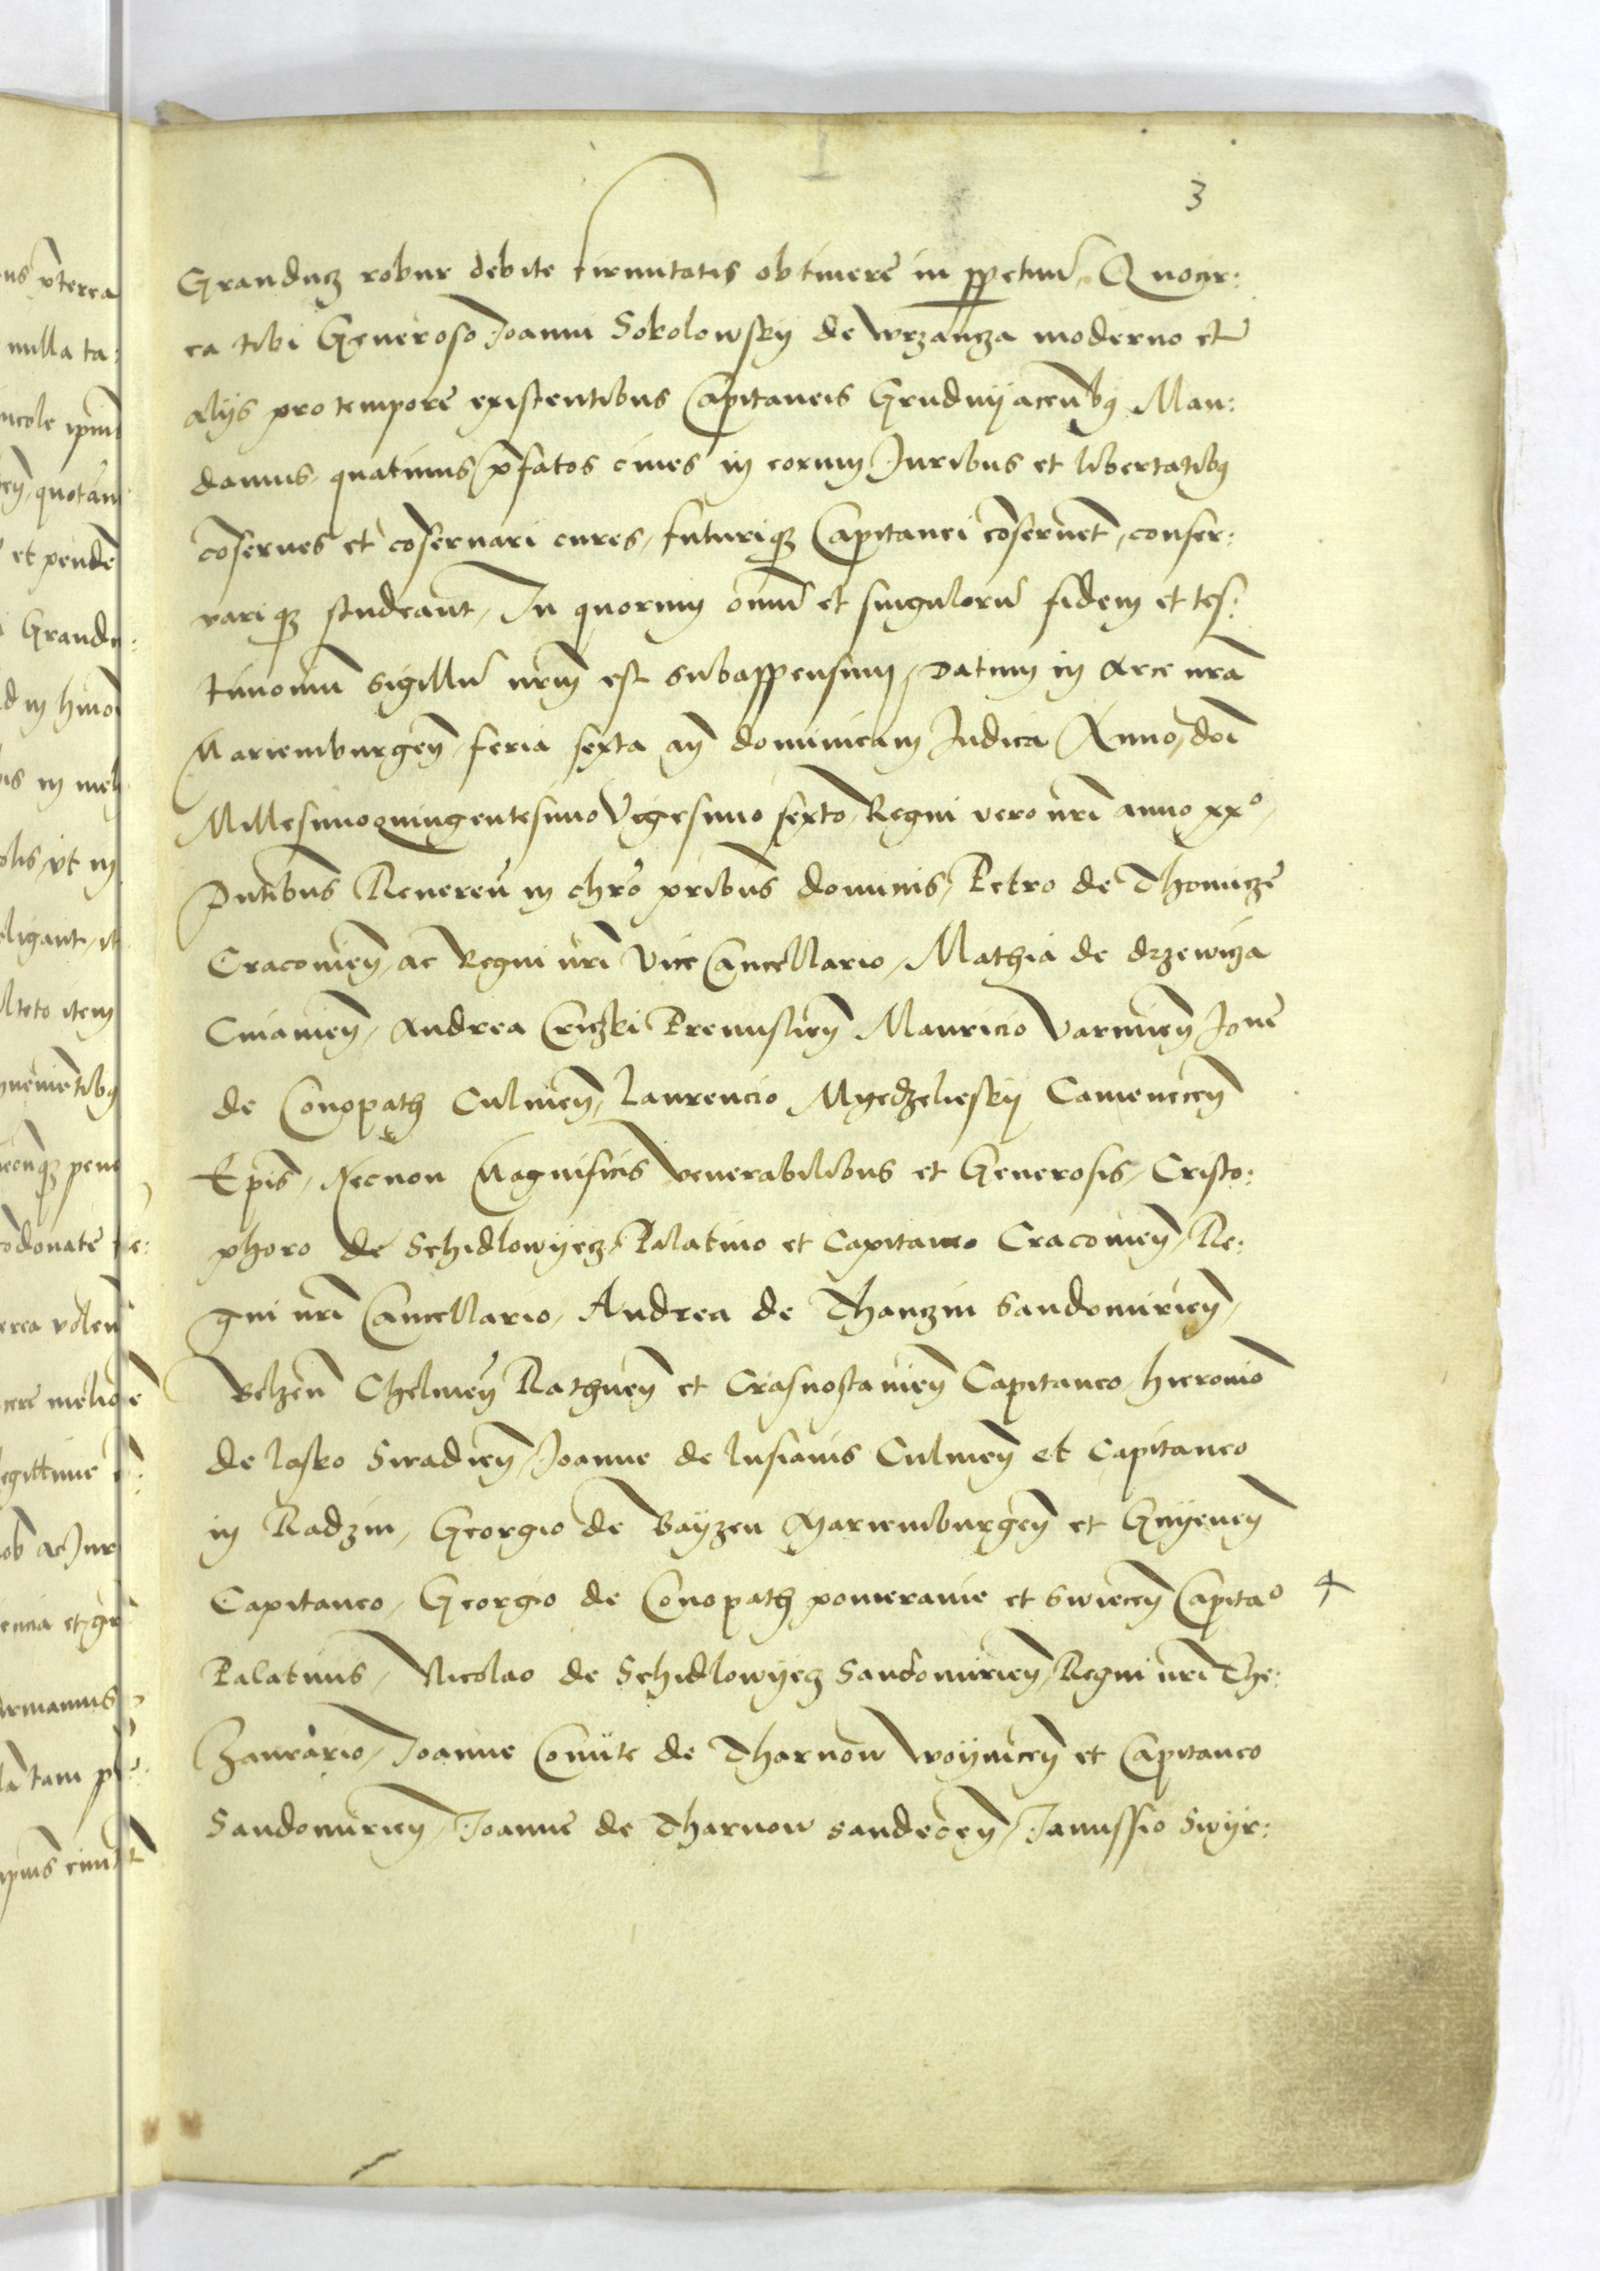 3
Grandncz robur debite firmitatis obtinere in ppetuū, Quocir:
ca tibi Generoso Joanni Sokolowsky de wrzancza moderno et
alijs pro tempore existentibus Capitaneis Grudnyacen̄bq Man:
damus, quatinus p̄fatos ciues in eorum Juribus et libertatibq
cōserues et cōseruari cures, futuriq Capitanei cōseruēt, conser:
variq studeant, In quorum om̄iū et singulorū fidem et tes:
timoniū sigillū nr̄m est subappensum, Datum in Arce nr̄a
Mariemburgen̄, feria sexta an̄ dominicam Judica Anno, doī
Millesimoquingentesimo Vigesimo sexto, Regni vero nr̄i anno xxº,
Pn̄tibus Reueren̄ in chr̄o pr̄ibus dominis, Petro de Thomicze
Cracouien̄, ac Regni nr̄i Vice Cancellario, Mathia de drzewicza
Cuiauien̄, Andrea Criczki Premislien̄ Mauricio Varmien̄ Joñe
de Conopath Culmen̄, Laurencio Myedzelieskij Camenecen̄
Ep̄is, Necnon Magnificis venerabilibus et Generosis, Cristo:
phoro de Schidlowyecz, Palatino et Capitaneo Cracouien̄, Re:
gni nr̄i Cancellario, Andrea de Thanczin Sandomirien̄,
Belzen̄ Chelmen̄ Rathnen̄ et Crasnostauien̄ Capitaneo, hieronio
de lasko Siradien̄, Joanne de lusianis Culmen̄ et Capitaneo
in Radzin, Georgio de Bayzen Mariemburgen̄ et Gnyeuen̄
Capitaneo, Georgio de Conopath pomeranie et Swiecen̄ Capitaº
Palatinis, Nicolao de Schidlowyecz Sandomirien̄, Regni nr̄i The:
zaurario, Joanne Comite de Tharnow woynicen̄ et Capitaneo
Sandomirien̄, Joanne de Tharnow sandecen̄, Janussio Swyr: